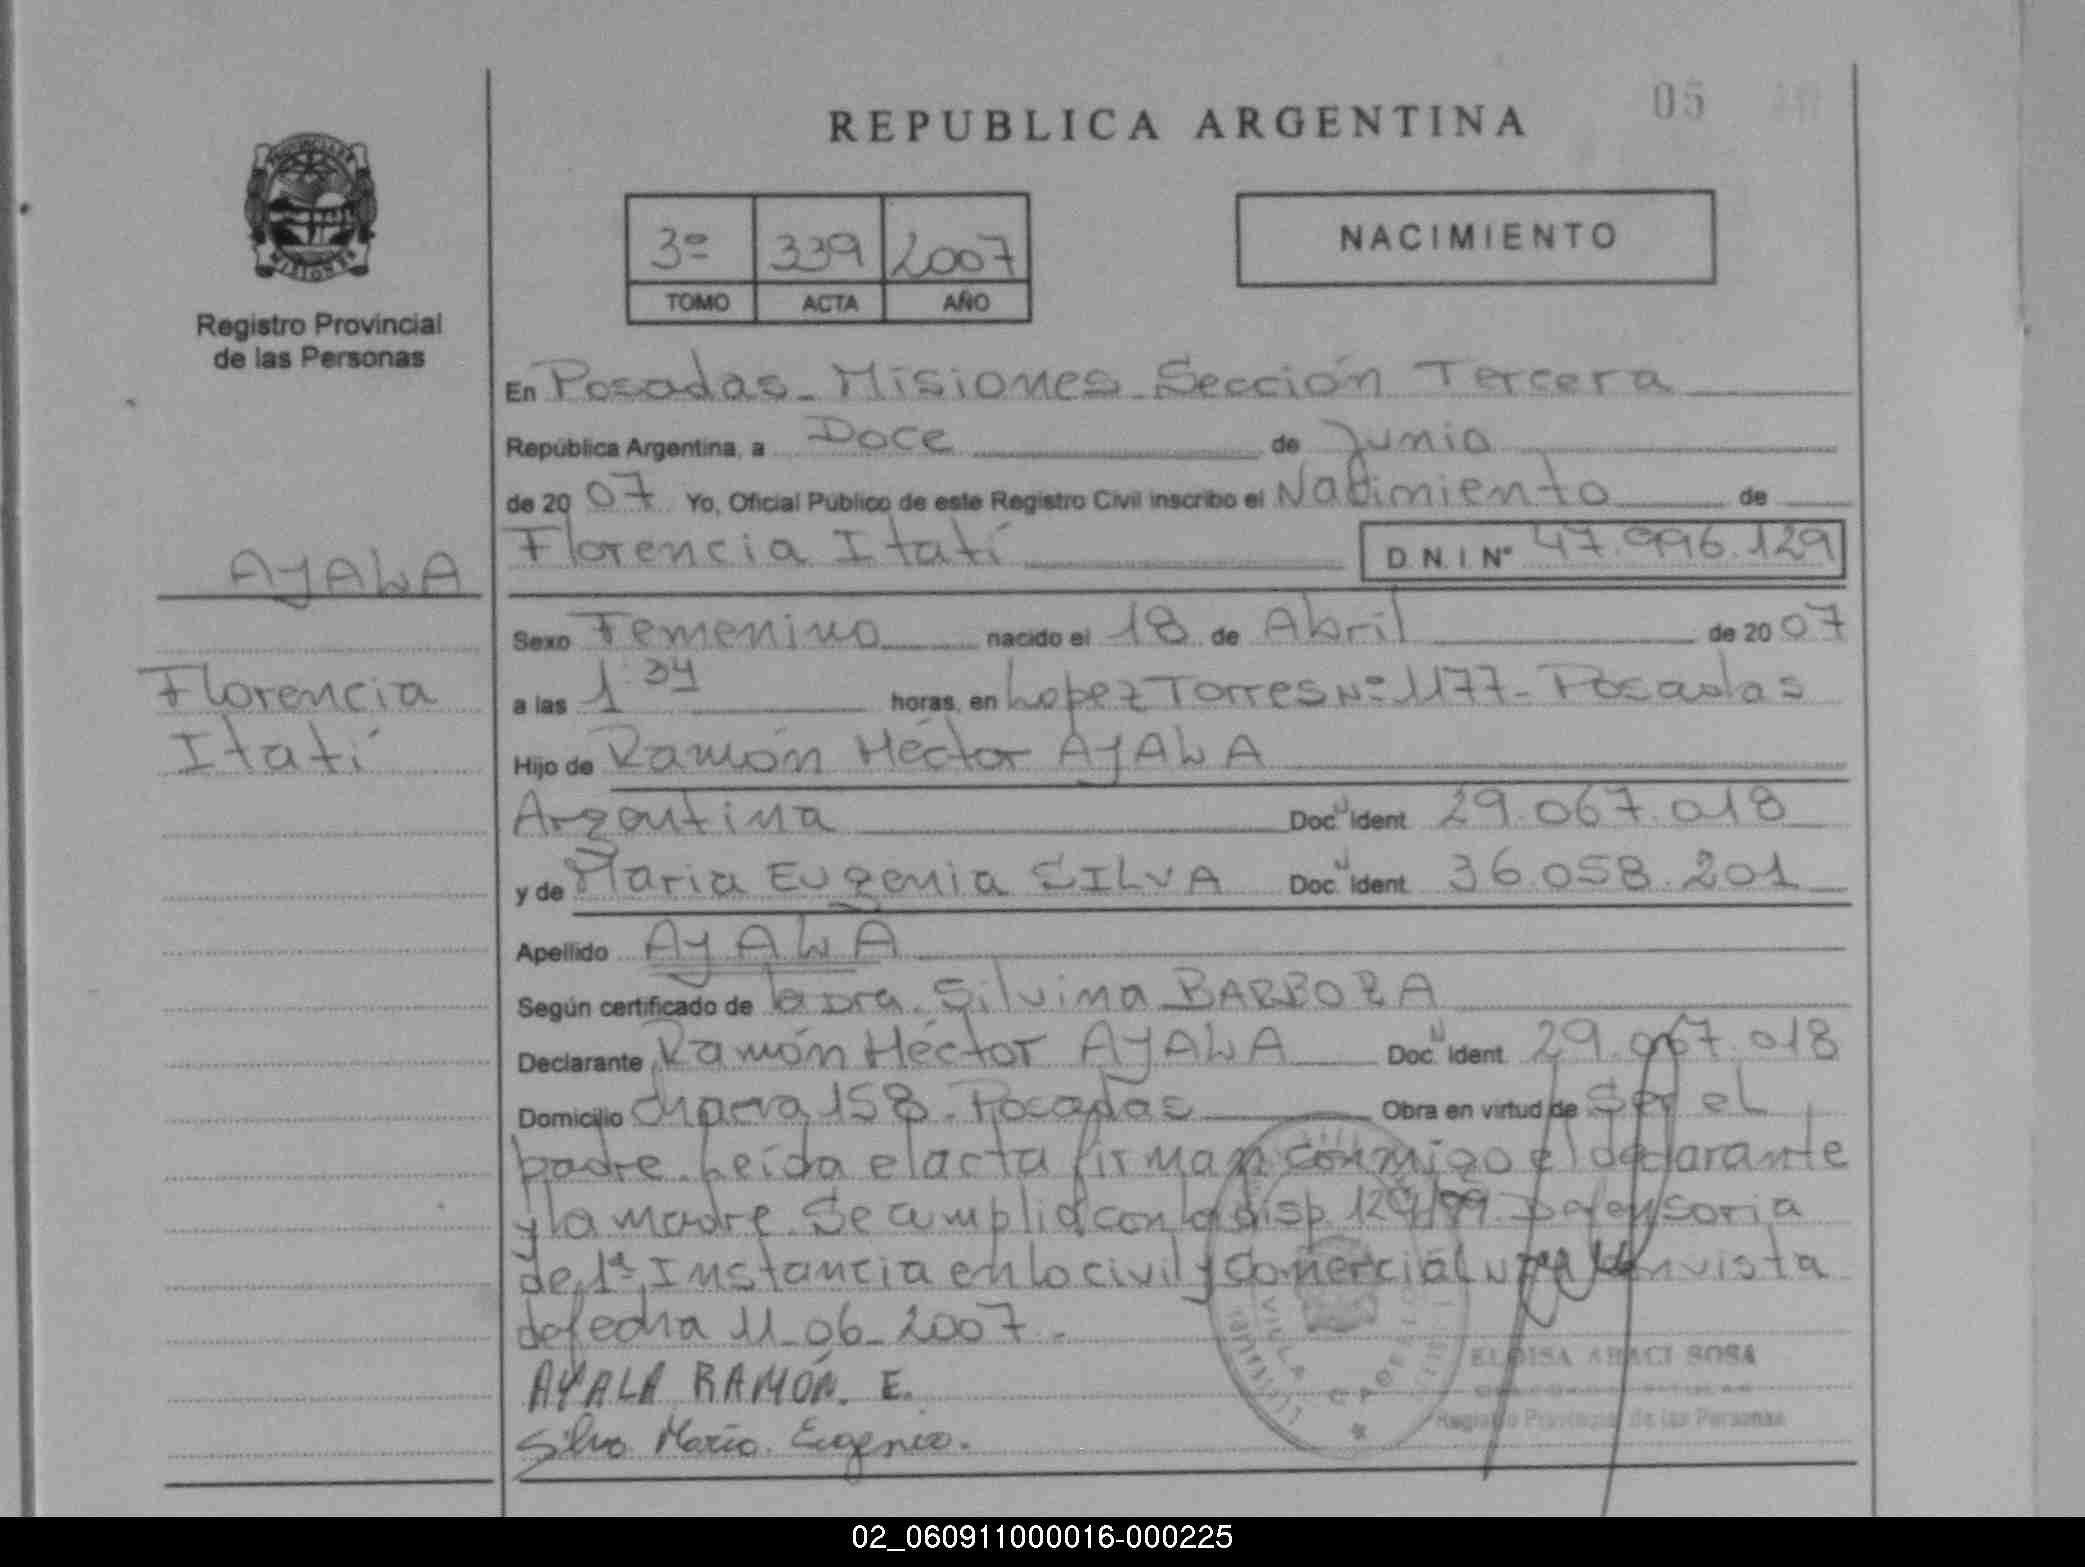 REPUBLICA ARGENTINA
05
3º 339 2007
TOMO ACTA AÑO
NACIMIENTO
Registro Provincial
de las Personas
En Posadas - Misiones - Sección Tercera
República Argentina, a Doce de Junio
de 2007 Yo, Oficial Público de este Registro Civil inscribo el Nacimiento de
Florencia Itatí D.N.I. Nº 47.996.129
AYALA
Florencia
Itatí
Sexo Femenino nacido el 18 de Abril de 2007
a las 1.34 horas, en Lopez Torres Nº 1177 - Posadas
Hijo de Ramón Héctor AYALA
Argentina Doc. Ident. 29.067.018
y de Maria Eugenia SILVA Doc. Ident. 36.058.201
Apellido AYALA
Según certificado de la Dra. Silvina BARBOZA
Declarante Ramón Héctor AYALA Doc. Ident. 29.067.018
Domicilio Chacra 158 - Posadas Obra en virtud de Ser el
padre. Leída el acta firman conmigo el declarante
y la madre. Se cumplió con la disp. 129/99. Defensoria
de 1ª Instancia en lo civil y Comercial en vista
de fecha 11-06-2007.
AYALA RAMÓN. E.
Silva Maria Eugenia.
ELOISA ARACI SOSA
Registro Provincial de las Personas
02_060911000016-000225